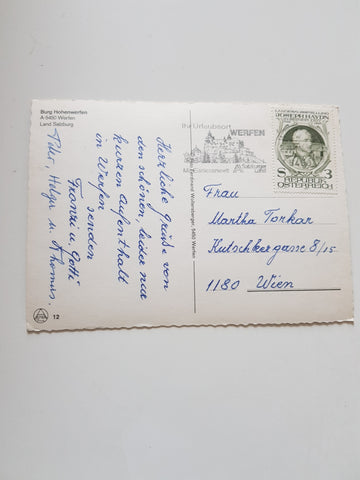 Burg Hohenwerfen
A-5450 Werfen
Land Salzburg
Herzliche Grüße von
den schönen, leider nur
kurzen Aufenthalt
in Werfen
senden
Franzi u. Gotti
Peter, Helga u. Thomas.
12
Ihr Urlaubsort
WERFEN
Ferdinand Wolfersberger, 5450 Werfen
JOSEPH HAYDN
S 3
REPUBLIK
ÖSTERREICH
Frau
Martha Torkar
Kutschkergasse 8/15
1180 Wien